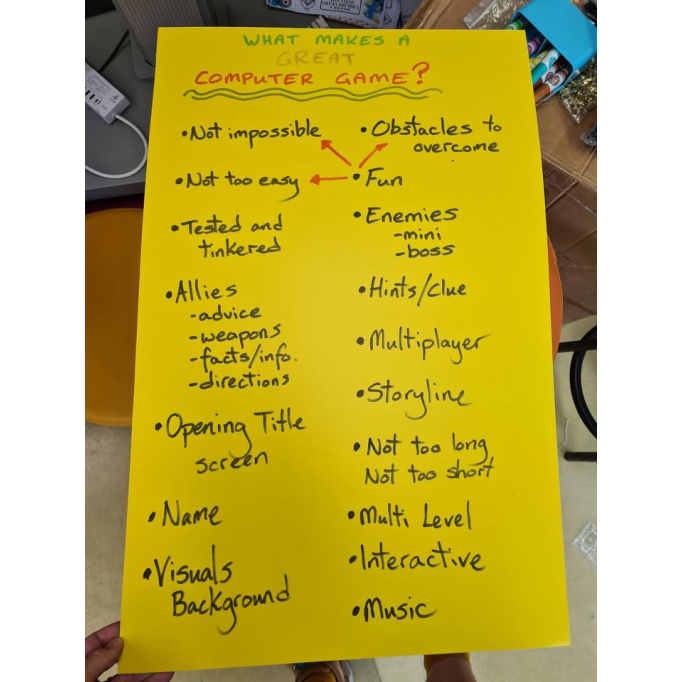 WHAT MAKES A
GREAT
COMPUTER GAME?
• Not impossible
• Not too easy
• Tested and
tinkered
• Allies
- advice
- weapons
- facts/info.
- directions
• Opening Title
screen
• Name
• Visuals
Background
• Obstacles to
overcome
• Fun
• Enemies
- mini
- boss
• Hints/clue
• Multiplayer
• Storyline
• Not too long
Not too short
• Multi Level
• Interactive
• Music